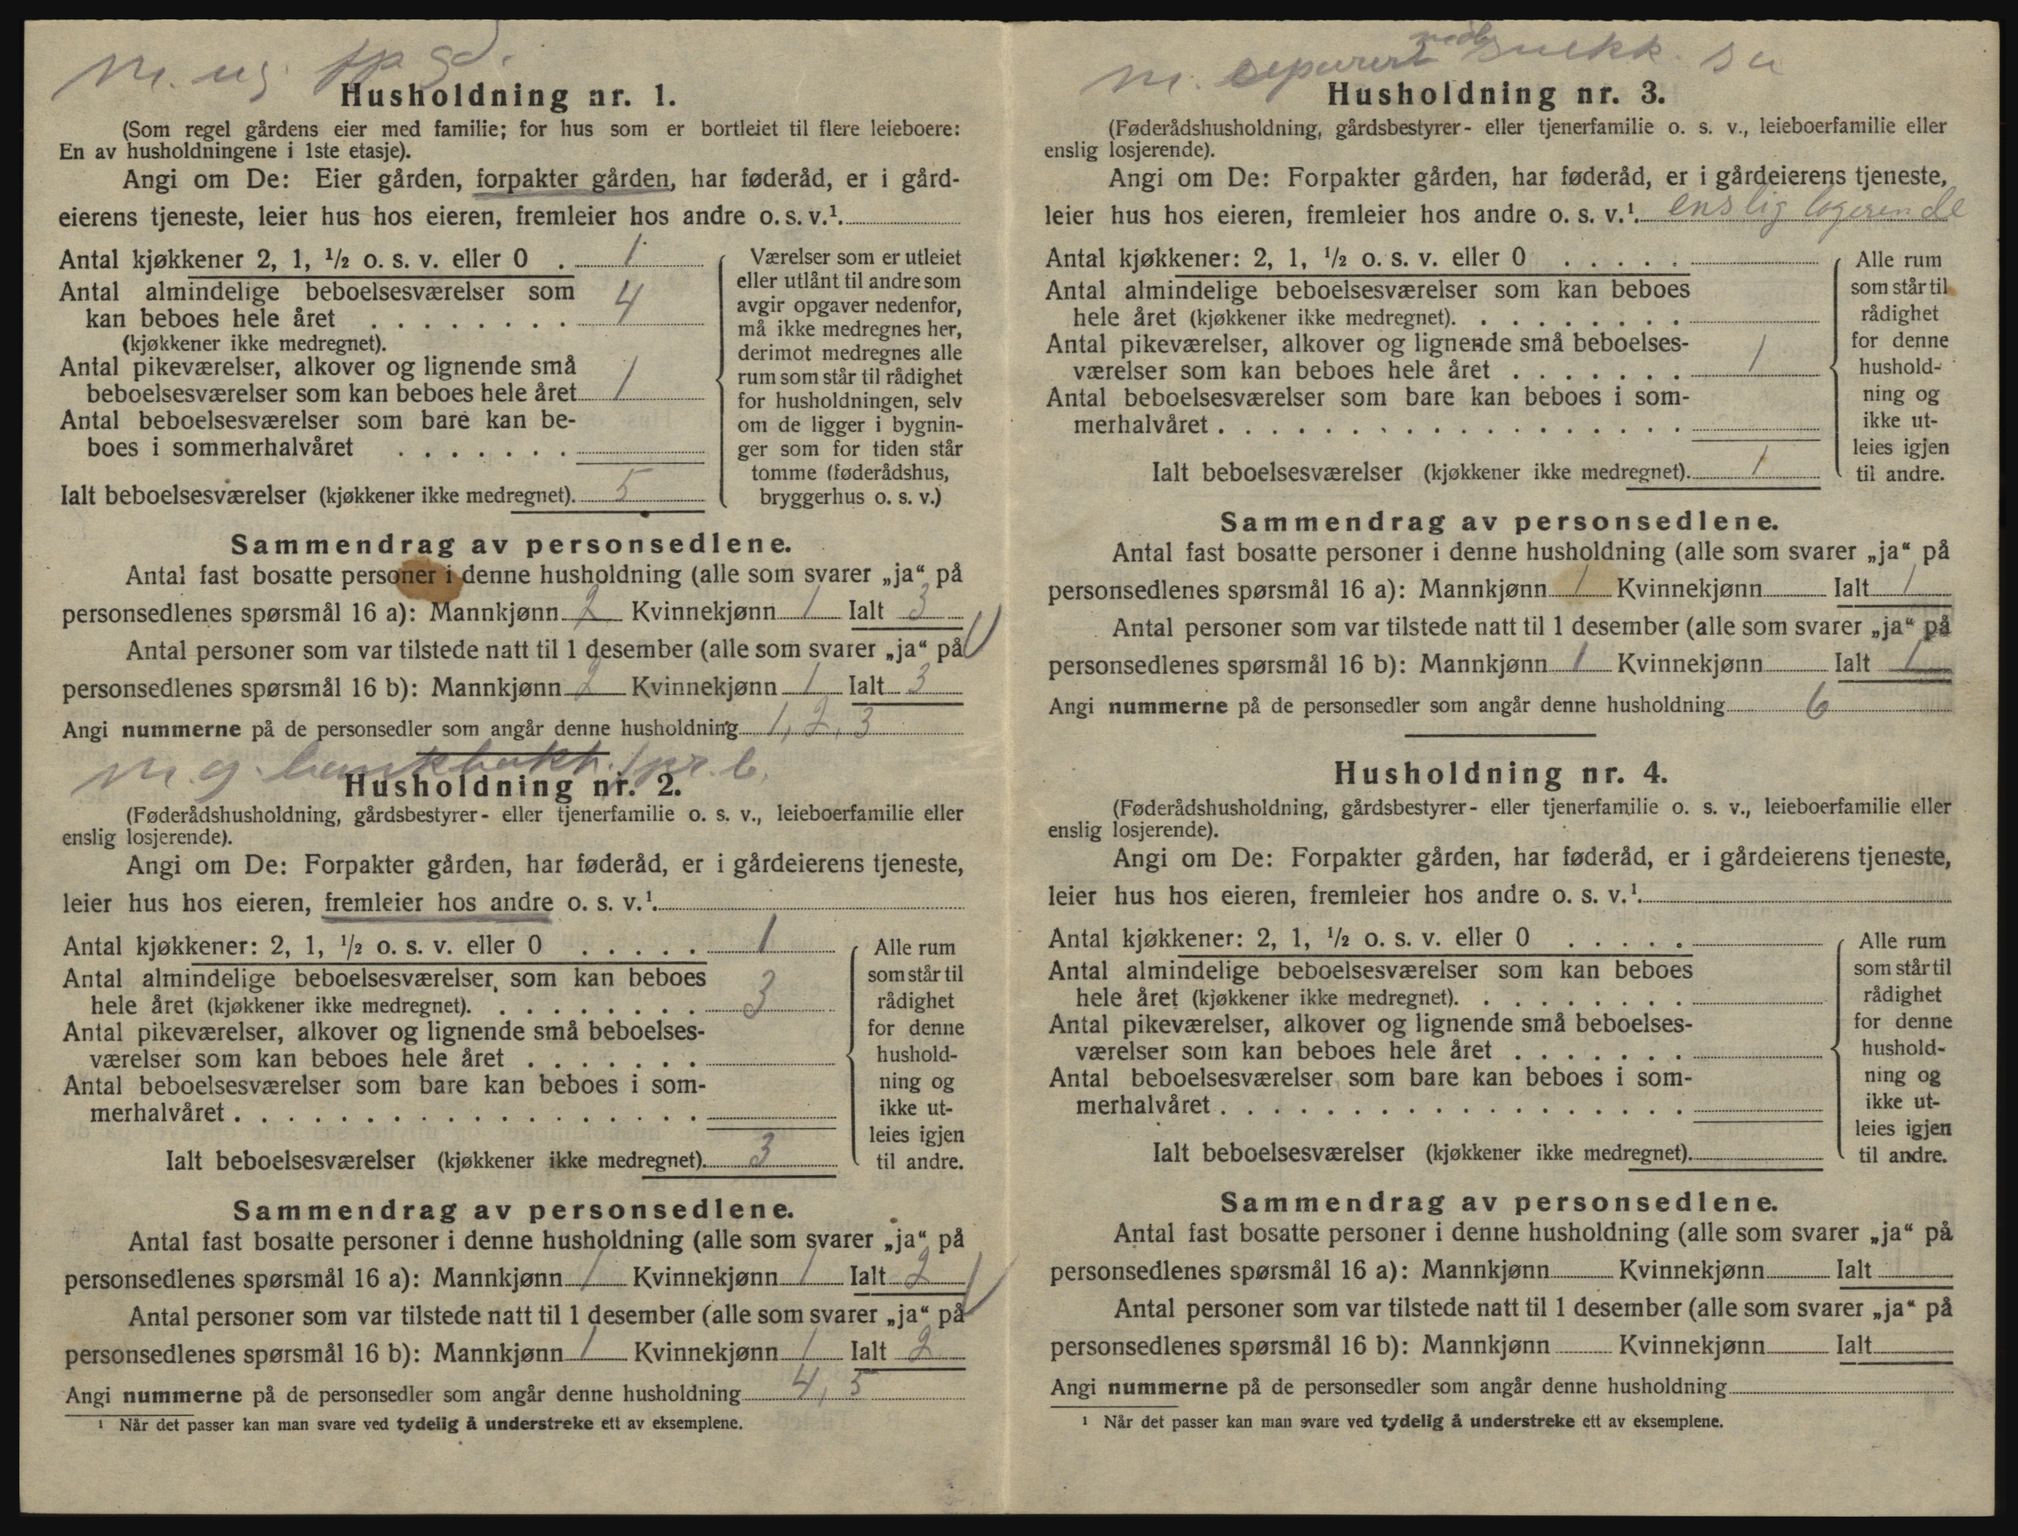 m. ug. fp. gd.
Husholdning nr. 1.
(Som regel gårdens eier med familie; for hus som er bortleiet til flere leieboere:
En av husholdningene i 1ste etasje).
Angi om De: Eier gården, forpakter gården, har føderåd, er i gård-
eierens tjeneste, leier hus hos eieren, fremleier hos andre o. s. v.¹.
Antal kjøkkener 2, 1, ½ o. s. v. eller 0 . 1
Antal almindelige beboelsesværelser som
kan beboes hele året . . . . . . . . 4
(kjøkkener ikke medregnet).
Antal pikeværelser, alkover og lignende små
beboelsesværelser som kan beboes hele året 1
Antal beboelsesværelser som bare kan be-
boes i sommerhalvåret . . . . . . .
Ialt beboelsesværelser (kjøkkener ikke medregnet). 5
Værelser som er utleiet
eller utlånt til andre som
avgir opgaver nedenfor,
må ikke medregnes her,
derimot medregnes alle
rum som står til rådighet
for husholdningen, selv
om de ligger i bygnin-
ger som for tiden står
tomme (føderådshus,
bryggerhus o. s. v.)
Sammendrag av personsedlene.
Antal fast bosatte personer i denne husholdning (alle som svarer „ja“ på
personsedlenes spørsmål 16 a): Mannkjønn 2 Kvinnekjønn 1 Ialt 3
Antal personer som var tilstede natt til 1 desember (alle som svarer „ja“ på
personsedlenes spørsmål 16 b): Mannkjønn 2 Kvinnekjønn 1 Ialt 3
Angi nummerne på de personsedler som angår denne husholdning 1, 2, 3
m. g. pr. b.
Husholdning nr. 2.
(Føderådshusholdning, gårdsbestyrer- eller tjenerfamilie o. s. v., leieboerfamilie eller
enslig losjerende).
Angi om De: Forpakter gården, har føderåd, er i gårdeierens tjeneste,
leier hus hos eieren, fremleier hos andre o. s. v.¹.
Antal kjøkkener: 2, 1, ½ o. s. v. eller 0 . . . . . 1
Antal almindelige beboelsesværelser som kan beboes
hele året (kjøkkener ikke medregnet). . . . . . . . . 3
Antal pikeværelser, alkover og lignende små beboelses-
værelser som kan beboes hele året . . . . . . .
Antal beboelsesværelser som bare kan beboes i som-
merhalvåret . . . . . . . . . . . . . . . . . .
Ialt beboelsesværelser (kjøkkener ikke medregnet). 3
Alle rum
som står til
rådighet
for denne
hushold-
ning og
ikke ut-
leies igjen
til andre.
Sammendrag av personsedlene.
Antal fast bosatte personer i denne husholdning (alle som svarer „ja“ på
personsedlenes spørsmål 16 a): Mannkjønn 1 Kvinnekjønn 1 Ialt 2
Antal personer som var tilstede natt til 1 desember (alle som svarer „ja“ på
personsedlenes spørsmål 16 b): Mannkjønn 1 Kvinnekjønn 1 Ialt 2
Angi nummerne på de personsedler som angår denne husholdning 4, 5
¹ Når det passer kan man svare ved tydelig å understreke ett av eksemplene.
m. separert snekk. su
Husholdning nr. 3.
(Føderådshusholdning, gårdsbestyrer- eller tjenerfamilie o. s. v., leieboerfamilie eller
enslig losjerende).
Angi om De: Forpakter gården, har føderåd, er i gårdeierens tjeneste,
leier hus hos eieren, fremleier hos andre o. s. v.¹. enslig logerende
Antal kjøkkener: 2, 1, ½ o. s. v. eller 0 . . . . .
Antal almindelige beboelsesværelser som kan beboes
hele året (kjøkkener ikke medregnet). . . . . . . . .
Antal pikeværelser, alkover og lignende små beboelses-
værelser som kan beboes hele året . . . . . . . 1
Antal beboelsesværelser som bare kan beboes i som-
merhalvåret . . . . . . . . . . . . . . . . . .
Ialt beboelsesværelser (kjøkkener ikke medregnet). 1
Alle rum
som står til
rådighet
for denne
hushold-
ning og
ikke ut-
leies igjen
til andre.
Sammendrag av personsedlene.
Antal fast bosatte personer i denne husholdning (alle som svarer „ja“ på
personsedlenes spørsmål 16 a): Mannkjønn 1 Kvinnekjønn Ialt 1
Antal personer som var tilstede natt til 1 desember (alle som svarer „ja“ på
personsedlenes spørsmål 16 b): Mannkjønn 1 Kvinnekjønn Ialt 1
Angi nummerne på de personsedler som angår denne husholdning 6
Husholdning nr. 4.
(Føderådshusholdning, gårdsbestyrer- eller tjenerfamilie o. s. v., leieboerfamilie eller
enslig losjerende).
Angi om De: Forpakter gården, har føderåd, er i gårdeierens tjeneste,
leier hus hos eieren, fremleier hos andre o. s. v.¹.
Antal kjøkkener: 2, 1, ½ o. s. v. eller 0 . . . . .
Antal almindelige beboelsesværelser som kan beboes
hele året (kjøkkener ikke medregnet). . . . . . . . .
Antal pikeværelser, alkover og lignende små beboelses-
værelser som kan beboes hele året . . . . . . .
Antal beboelsesværelser som bare kan beboes i som-
merhalvåret . . . . . . . . . . . . . . . . . .
Ialt beboelsesværelser (kjøkkener ikke medregnet).
Alle rum
som står til
rådighet
for denne
hushold-
ning og
ikke ut-
leies igjen
til andre.
Sammendrag av personsedlene.
Antal fast bosatte personer i denne husholdning (alle som svarer „ja“ på
personsedlenes spørsmål 16 a): Mannkjønn Kvinnekjønn Ialt
Antal personer som var tilstede natt til 1 desember (alle som svarer „ja“ på
personsedlenes spørsmål 16 b): Mannkjønn Kvinnekjønn Ialt
Angi nummerne på de personsedler som angår denne husholdning
¹ Når det passer kan man svare ved tydelig å understreke ett av eksemplene.